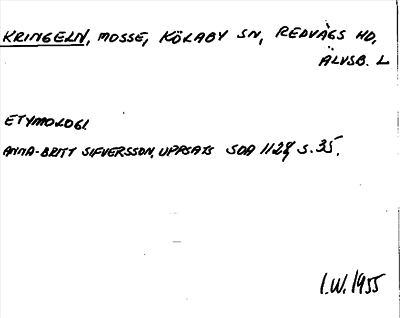 KRINGELN, MOSSE, KÖLABY SN, REDVÄGS HD,
ÄLVSB. L
ETYMOLOGI
ANNA-BRITT SIFVERSSON, UPPSATS SOA 1128 S. 35.
I.W. 1955